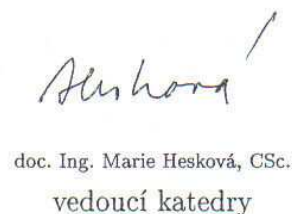 Hesková
doc. Ing. Marie Hesková, CSc.
vedoucí katedry